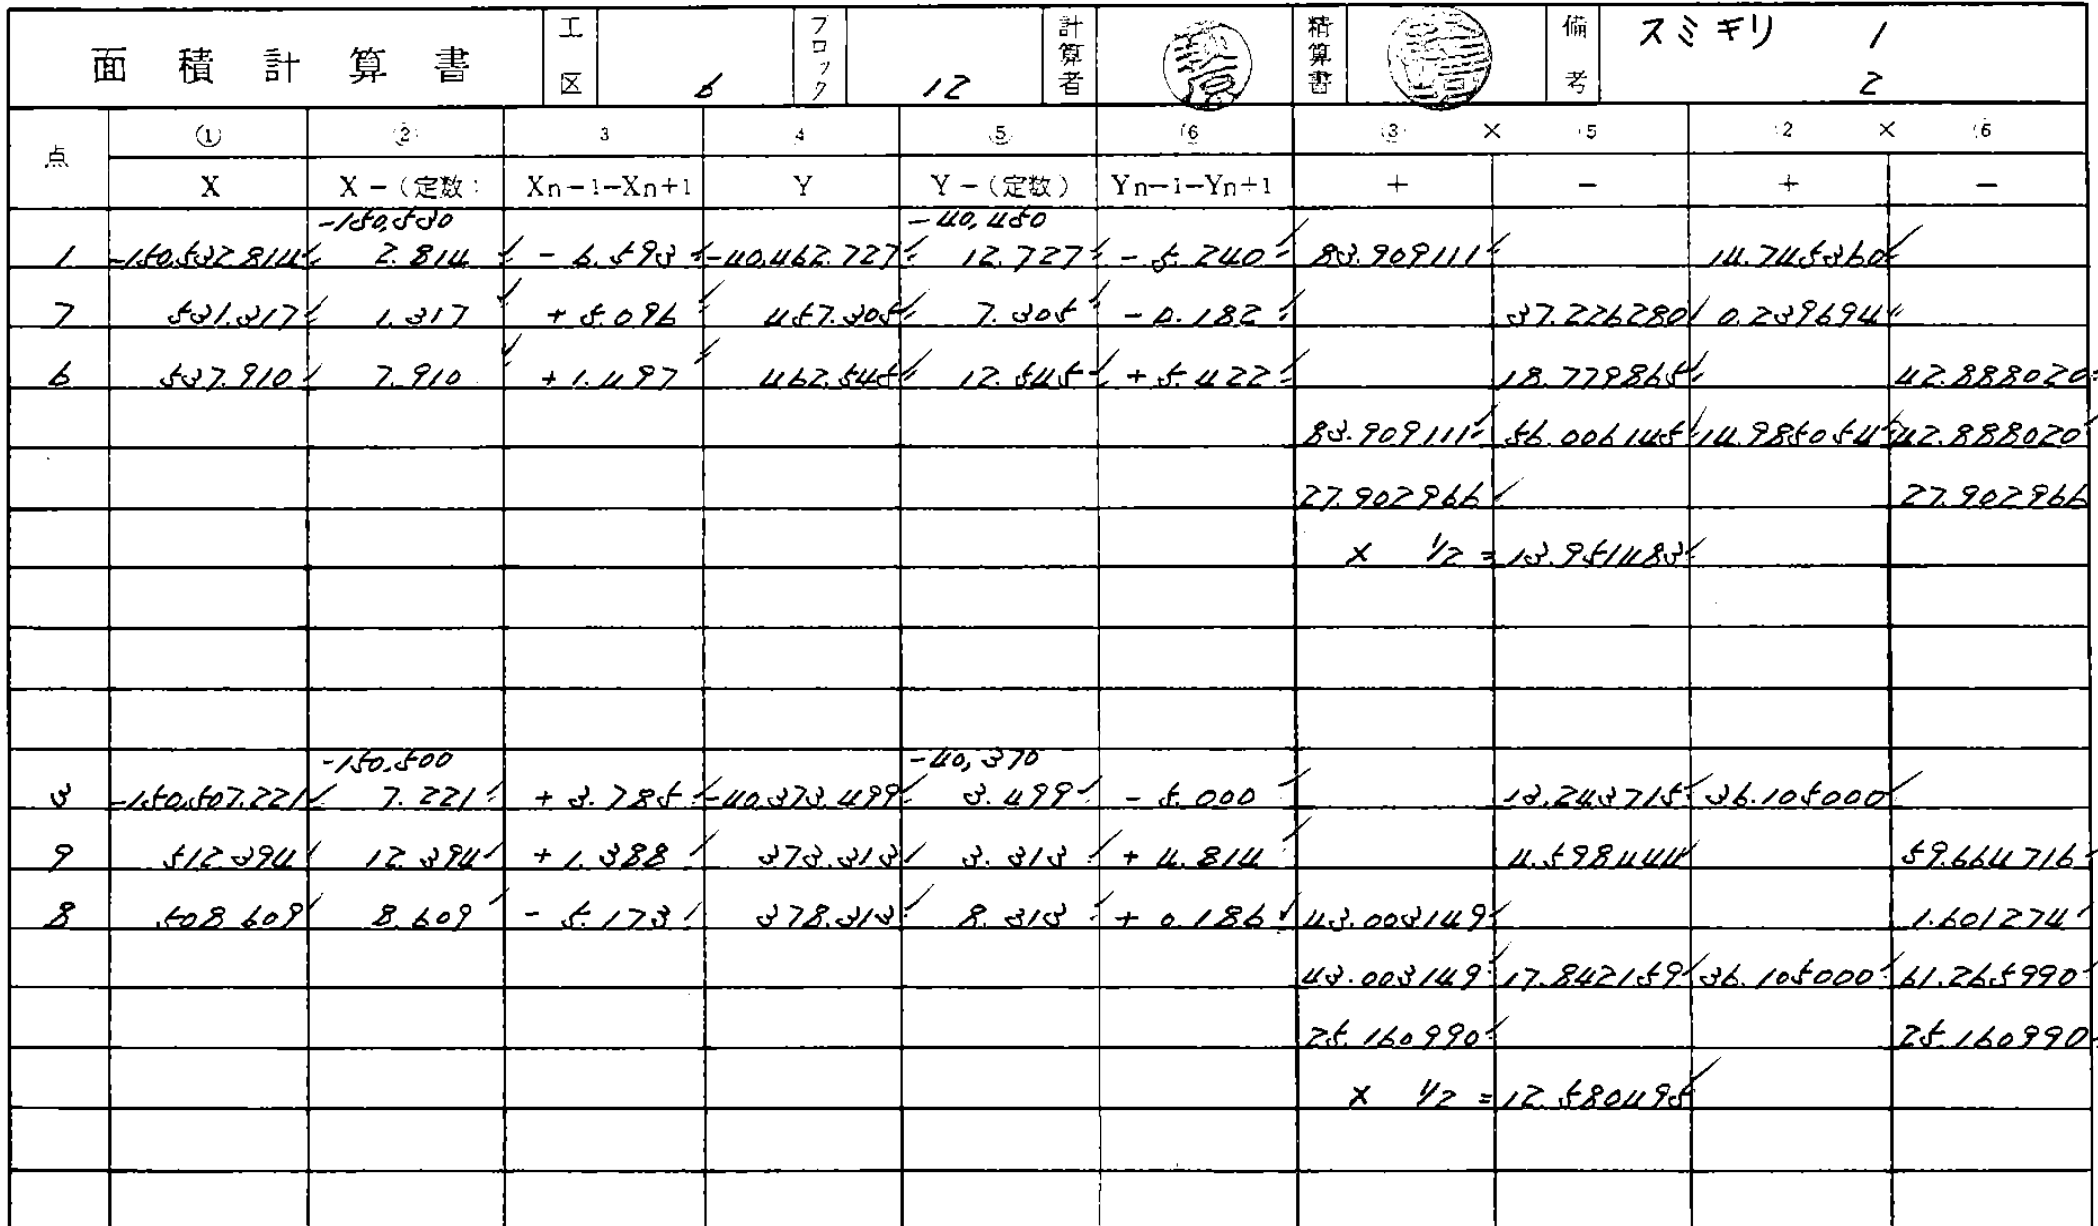 面積計算書 工区 6 ブロック 12 計算者 精算書 備考 スミキリ 1
2
点 ① ② 3 4 ⑤ 6 3 × 5 2 × 6
X X-(定数) Xn-1-Xn+1 Y Y-(定数) Yn-1-Yn+1 + - + -
-150,530 -40,450
1 -150,532.814 2.814 -6.593 -40,462.727 12.727 -5.240 83.909111 14.745360
7 531.317 1.317 +5.096 457.305 7.305 -0.182 37.226280 0.239694
6 537.910 7.910 +1.497 462.545 12.545 +5.422 18.779865 42.888020
83.909111 56.006145 14.985054 42.888020
27.902966 27.902966
× 1/2 = 13.951483
-150,500 -40,370
3 -150,507.221 7.221 +3.785 -40,373.499 3.499 -5.000 13.243715 36.105000
9 512.394 12.394 +1.388 373.313 3.313 +4.814 4.598444 59.664716
8 508.609 8.609 -5.173 378.313 8.313 +0.186 43.003149 1.601274
43.003149 17.842159 36.105000 61.265990
25.160990 25.160990
× 1/2 = 12.580495